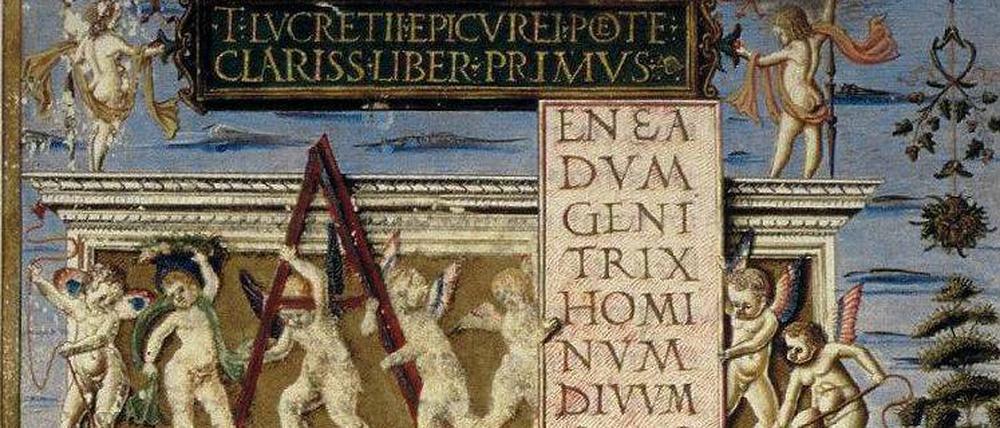 T·LVCRETII·EPICVREI·POETE·
CLARISS·LIBER·PRIMVS·
A
ENEA
DVM
GENI
TRIX
HOMI
NVM
DIVVM